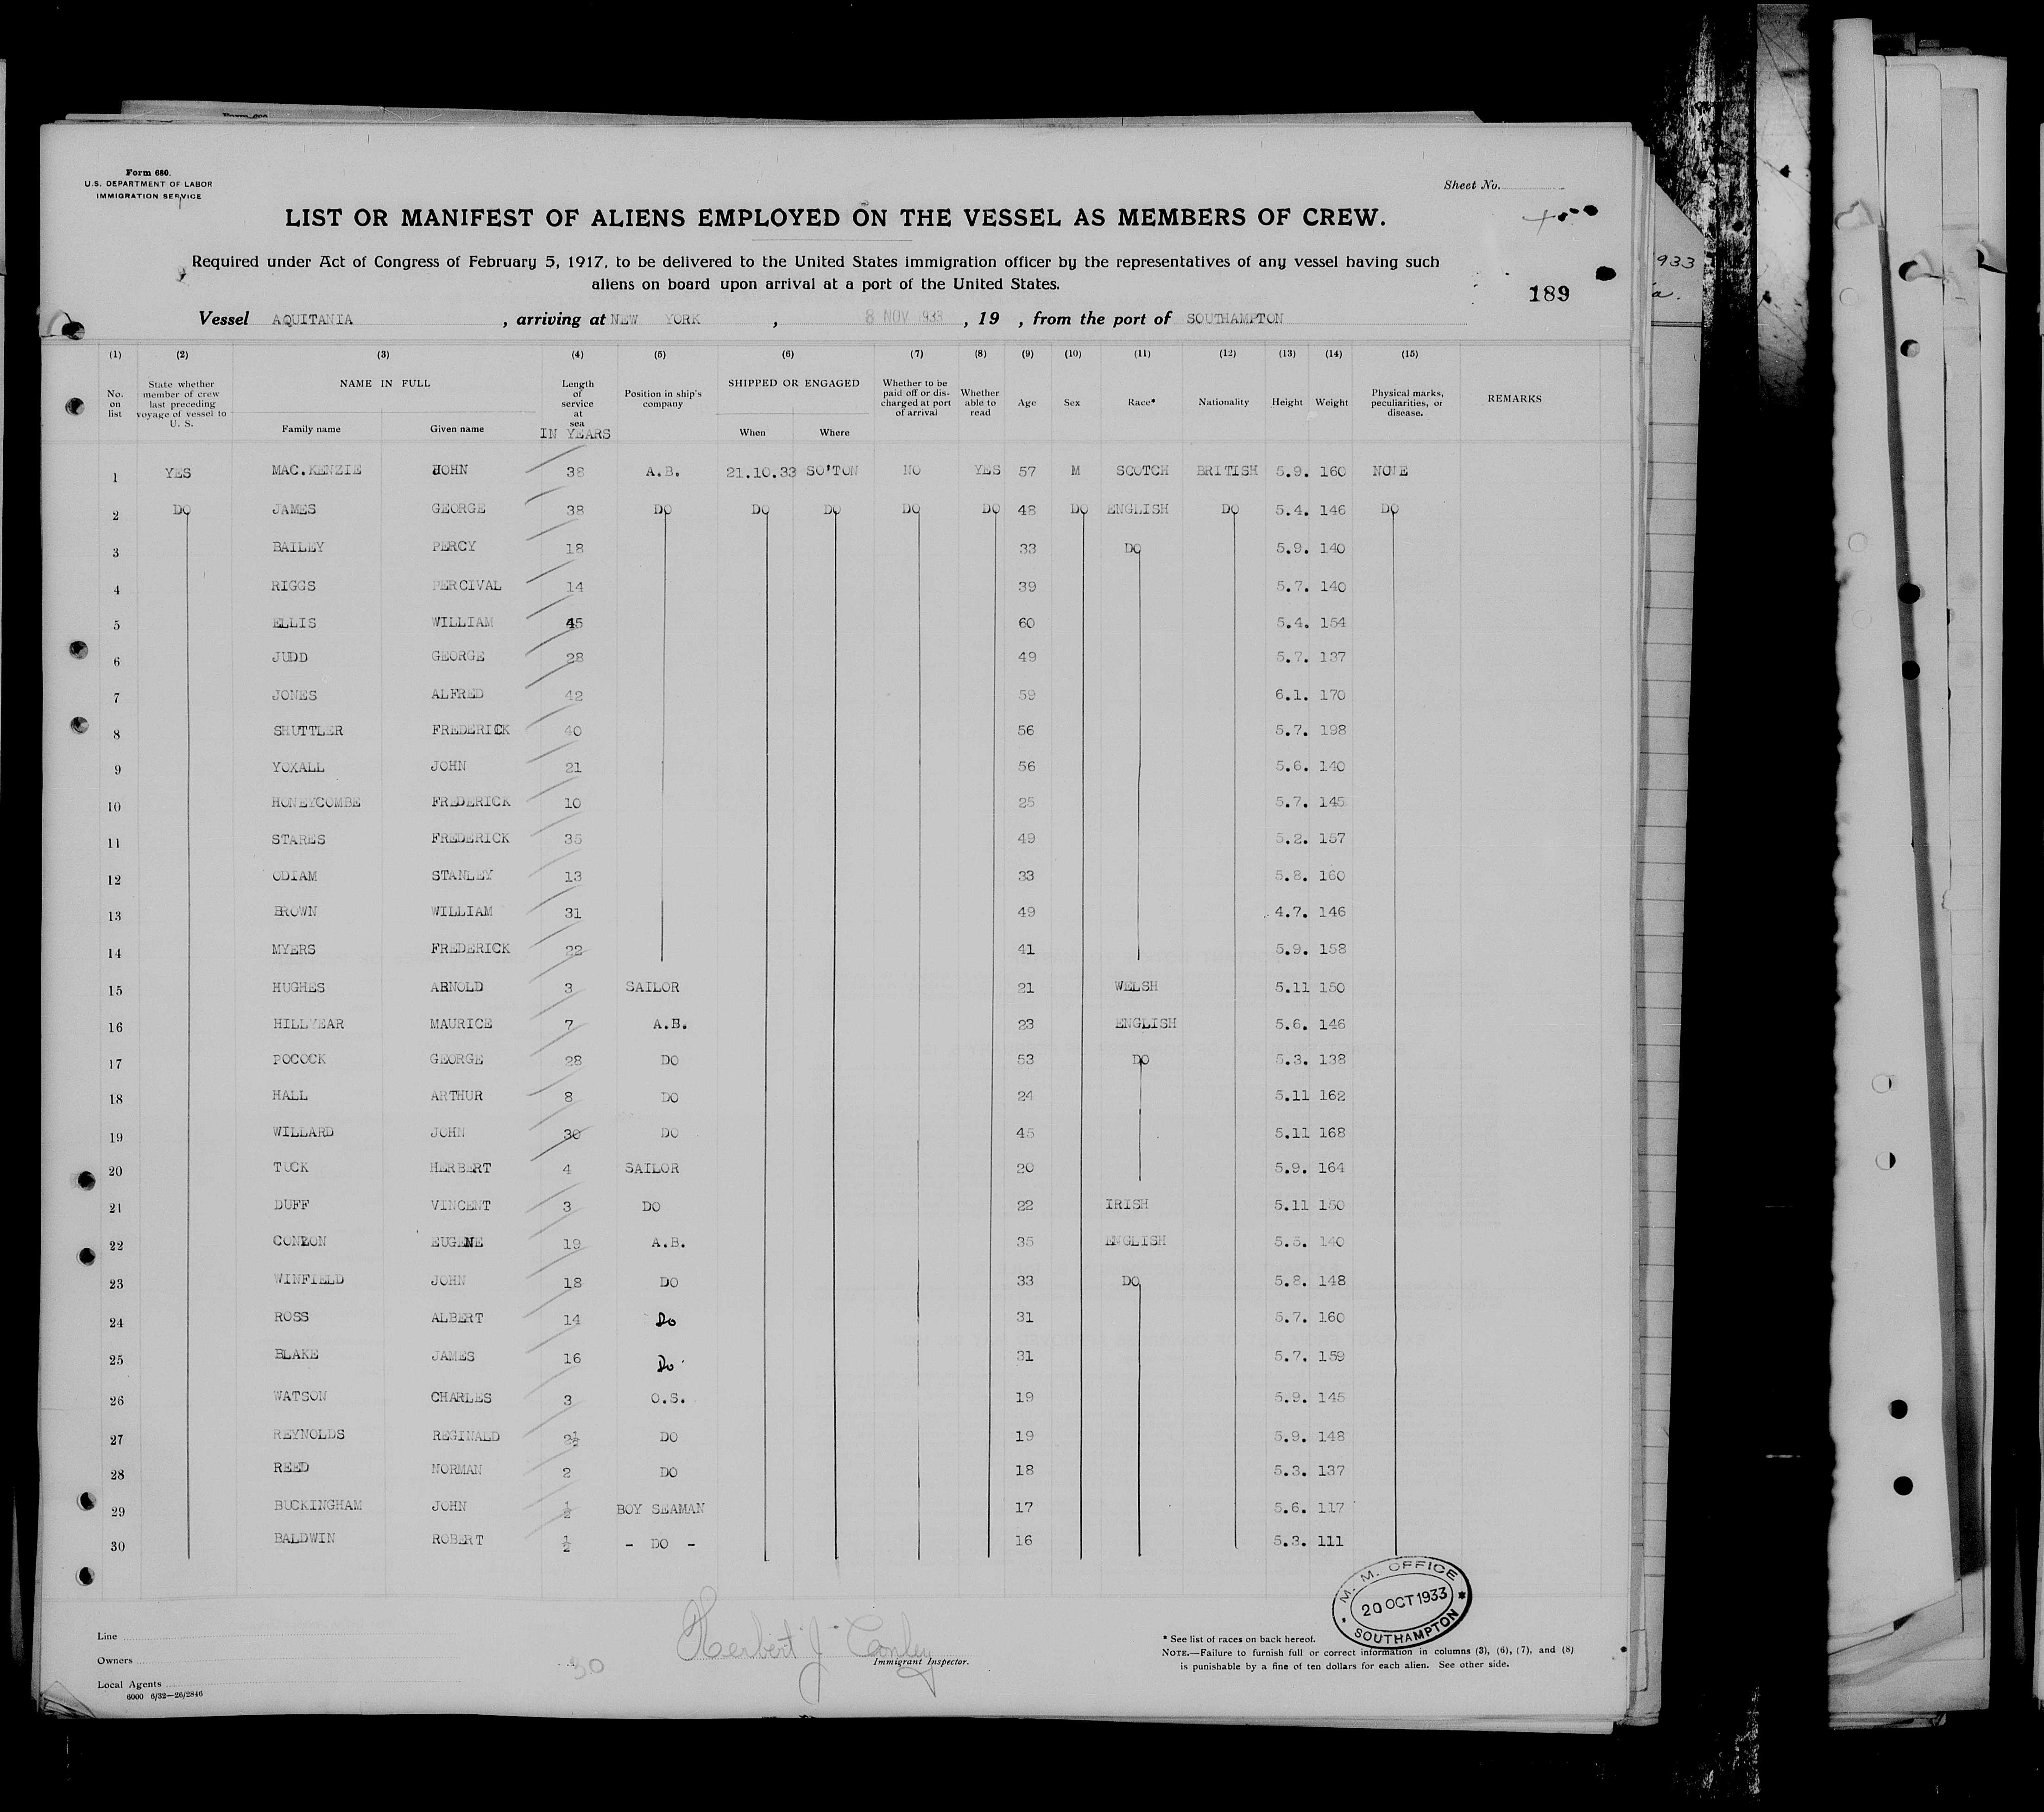 Form 680.
U.S. DEPARTMENT OF LABOR
IMMIGRATION SERVICE
Sheet No.
LIST OR MANIFEST OF ALIENS EMPLOYED ON THE VESSEL AS MEMBERS OF CREW.
Required under Act of Congress of February 5, 1917, to be delivered to the United States immigration officer by the representatives of any vessel having such
aliens on board upon arrival at a port of the United States.
189
933
a.
Vessel AQUITANIA , arriving at NEW YORK , 8 NOV 1933 , 19 , from the port of SOUTHAMPTON
(1) (2) (3) (4) (5) (6) (7) (8) (9) (10) (11) (12) (13) (14) (15)
No. on list State whether member of crew last preceding voyage of vessel to U. S. NAME IN FULL Family name Given name Length of service at sea IN YEARS Position in ship's company SHIPPED OR ENGAGED When Where Whether to be paid off or discharged at port of arrival Whether able to read Age Sex Race* Nationality Height Weight Physical marks, peculiarities, or disease. REMARKS
1 YES MAC.KENZIE JOHN 38 A.B. 21.10.33 SO'TON NO YES 57 M SCOTCH BRITISH 5.9. 160 NONE
2 DO JAMES GEORGE 38 DO DO DO DO DO 48 DO ENGLISH DO 5.4. 146 DO
3 BAILEY PERCY 18 33 DO 5.9. 140
4 RIGGS PERCIVAL 14 39 5.7. 140
5 ELLIS WILLIAM 45 60 5.4. 154
6 JUDD GEORGE 28 49 5.7. 137
7 JONES ALFRED 42 59 6.1. 170
8 SHUTTLER FREDERICK 40 56 5.7. 198
9 YOXALL JOHN 21 56 5.6. 140
10 HONEYCOMBE FREDERICK 10 25 5.7. 145
11 STARES FREDERICK 35 49 5.2. 157
12 ODIAM STANLEY 13 33 5.8. 160
13 BROWN WILLIAM 31 49 4.7. 146
14 MYERS FREDERICK 22 41 5.9. 158
15 HUGHES ARNOLD 3 SAILOR 21 WELSH 5.11 150
16 HILLYEAR MAURICE 7 A.B. 23 ENGLISH 5.6. 146
17 POCOCK GEORGE 28 DO 53 DO 5.3. 138
18 HALL ARTHUR 8 DO 24 5.11 162
19 WILLARD JOHN 30 DO 45 5.11 168
20 TUCK HERBERT 4 SAILOR 20 5.9. 164
21 DUFF VINCENT 3 DO 22 IRISH 5.11 150
22 CONLON EUGENE 19 A.B. 35 ENGLISH 5.5. 140
23 WINFIELD JOHN 18 DO 33 DO 5.8. 148
24 ROSS ALBERT 14 Do 31 5.7. 160
25 BLAKE JAMES 16 Do 31 5.7. 159
26 WATSON CHARLES 3 O.S. 19 5.9. 145
27 REYNOLDS REGINALD 2½ DO 19 5.9. 148
28 REED NORMAN 2 DO 18 5.3. 137
29 BUCKINGHAM JOHN ½ BOY SEAMAN 17 5.6. 117
30 BALDWIN ROBERT ½ - DO - 16 5.3. 111
M. M. OFFICE
20 OCT 1933
SOUTHAMPTON
Line
Owners
Local Agents
6000 6/32—26/2846
30
Herbert J Conley
Immigrant Inspector.
* See list of races on back hereof.
NOTE.—Failure to furnish full or correct information in columns (3), (6), (7), and (8)
is punishable by a fine of ten dollars for each alien. See other side.